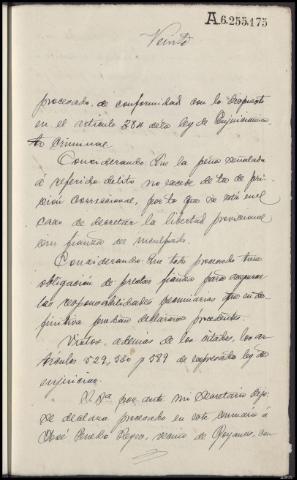 A.6.255.175
Veinte
procesado de conformidad con lo dispuesto
en el artículo 384 de la ley de Enjuiciamien
to Criminal.
Considerando: Que la pena señalada
á referido delito no excede de la de pri
sion correccional, por lo que se está en el
caso de decretar la libertad provisional
con fianza del inculpado.
Considerando: Que todo procesado tiene
obligación de prestar fianza para asegurar
las responsabilidades pecuniarias que en de
finitiva puedan declararse procedentes.
Vistos, ademas de los citados, los ar
tículos 529, 530 y 589 de expresada ley de
Enjuiciar.
S. Sª por ante mi Secretario dijo:
Se declara procesado en este sumario á
José Reyes, vecino de con